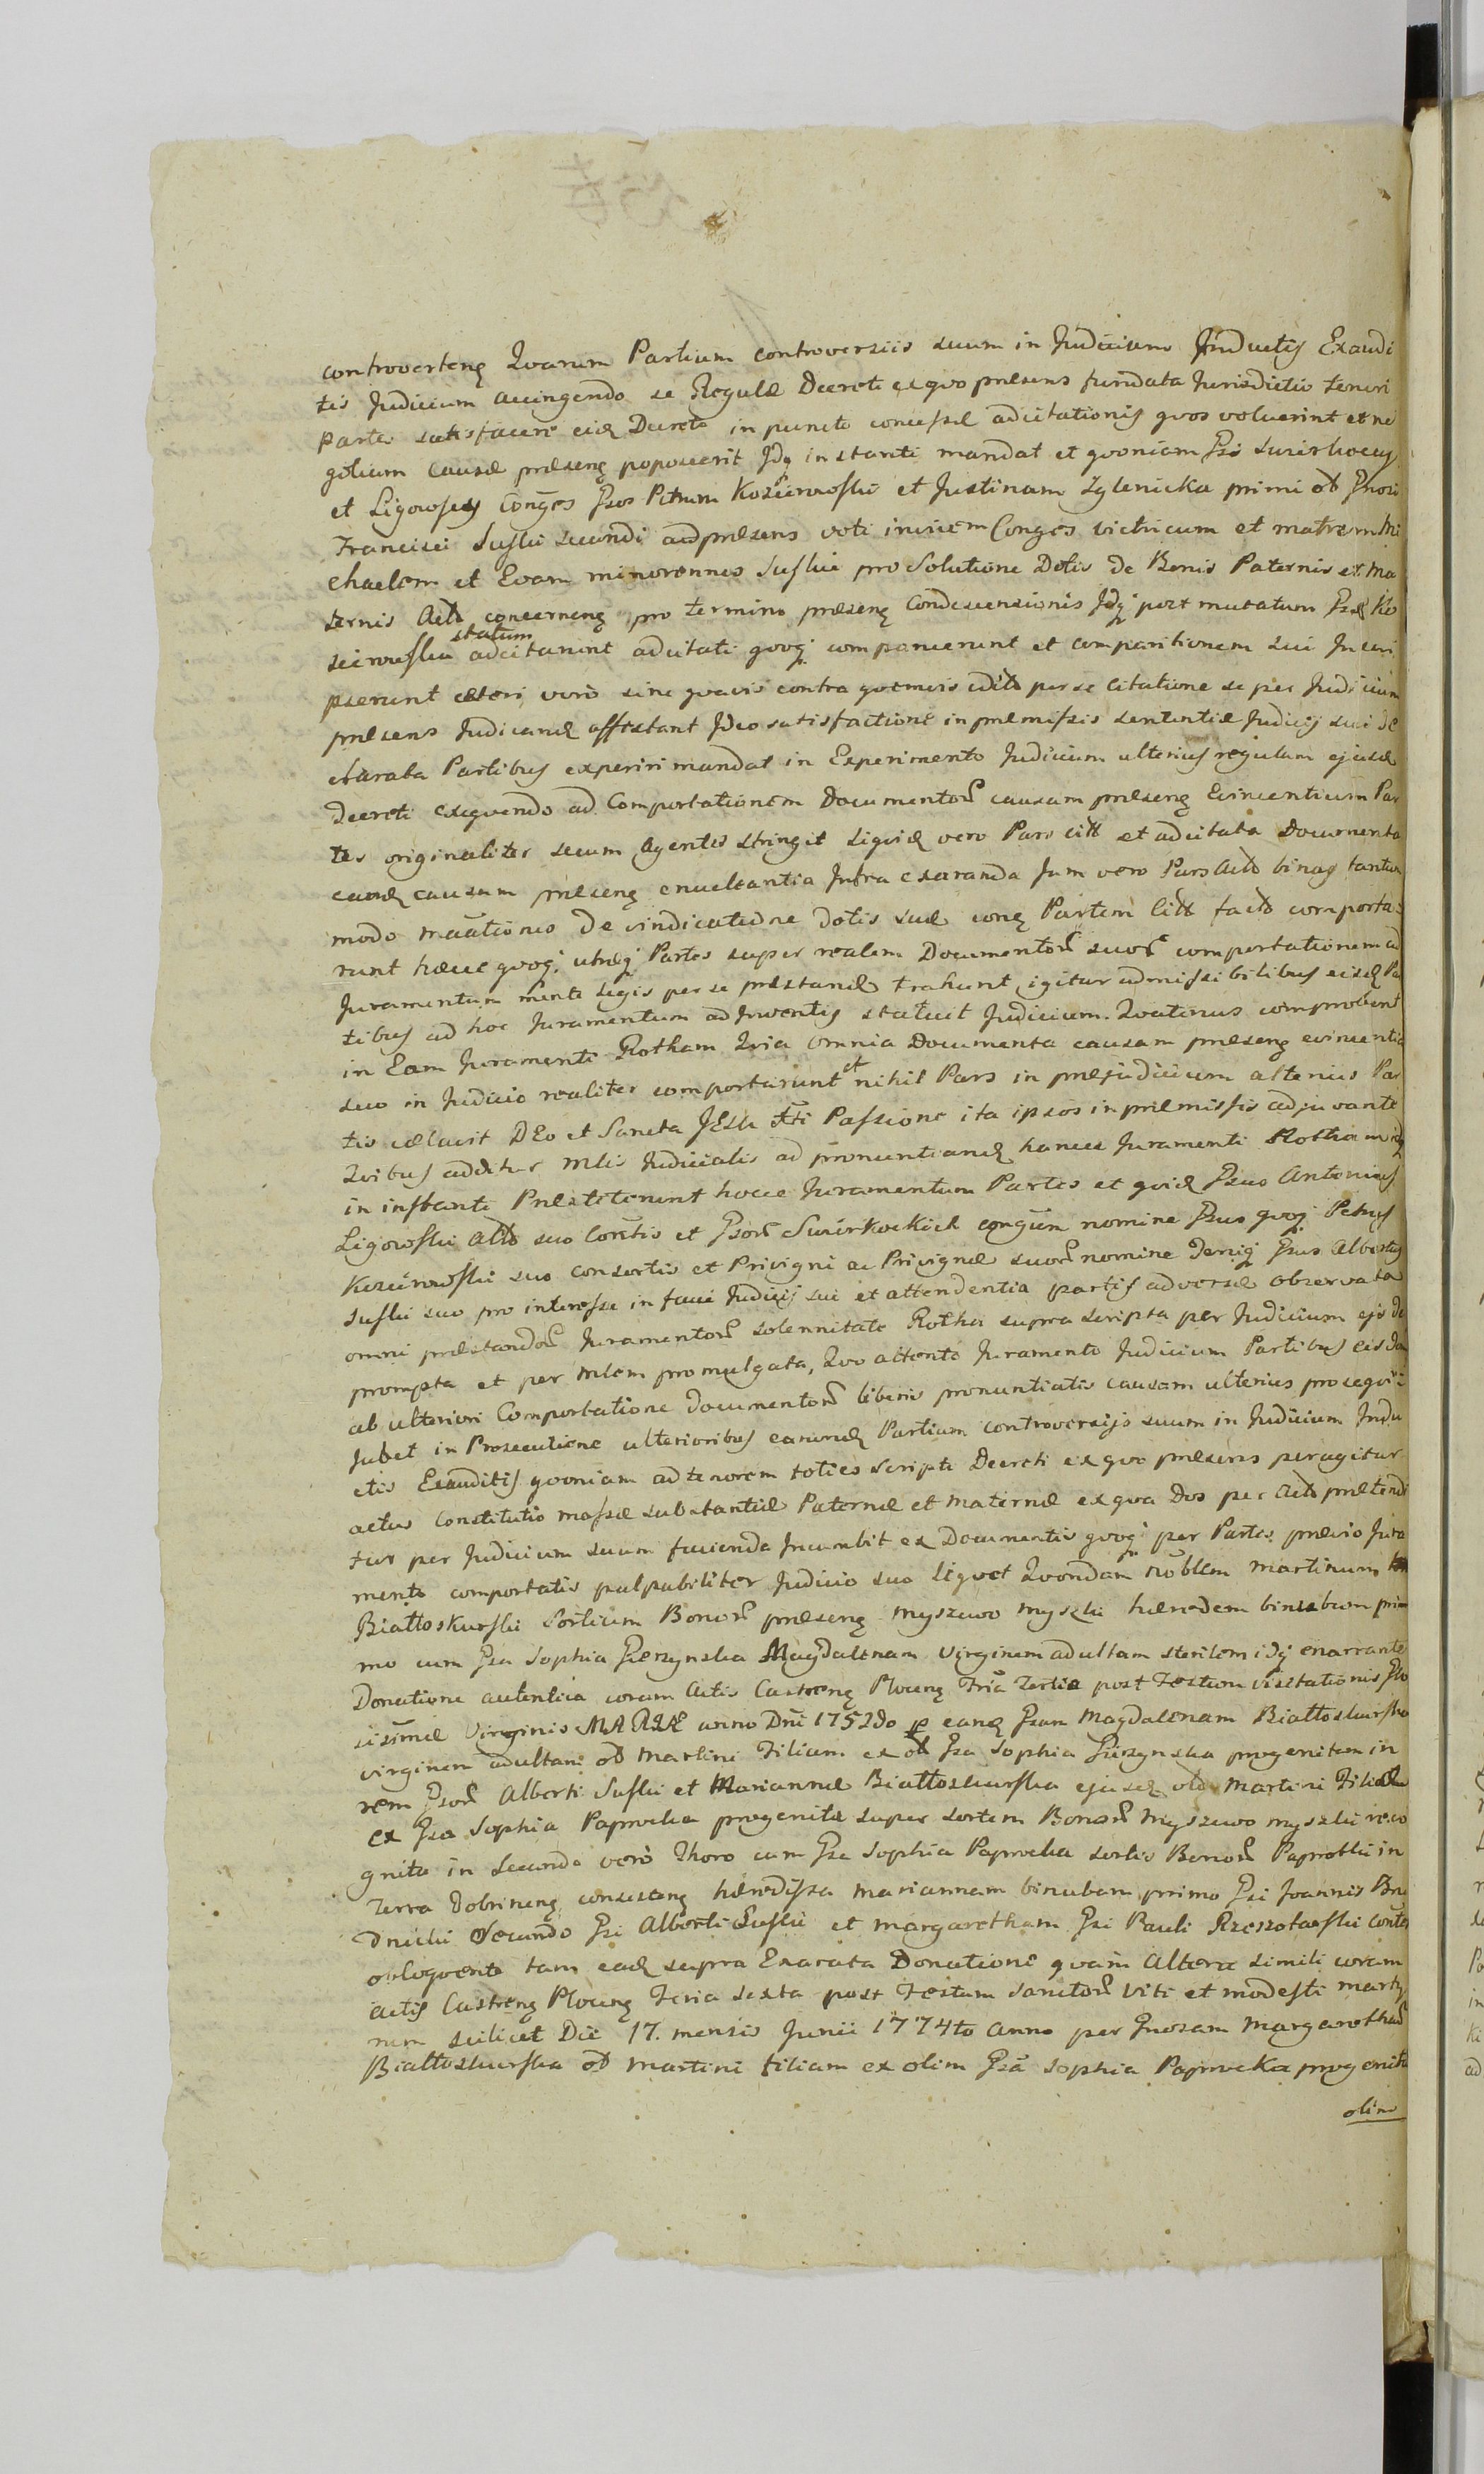 controverteng Qvarum Partium controversiis suum in Judicium Inductis Exaudi
tis Judicium accingendo se Regulæ Decreti ex qvo præsens fundata Jurisdictio teneri
partes satisfacere eid Decreto in puncto concessæ adcitationis qvos voluerint et ne
gotium causæ præseng poposcerit Idq instanti mandat et qvoniam Gsi Swierkoccy
et Ligowscy Conges Gsos Petrum Koscirowski et Justinam Zglenicka primi od Gnosi
Francisci Suski secundi ad præsens voti invicem Conges victricum et matrem Mi
chaelem et Evam minorennes Suskie pro Solutione Dotis de Bonis Paternis et Ma
ternis Acto concerneng pro termino præseng Condescensionis Idq post mutatum Gsæ Ko
statum
scirowska adcitarint adcitati qvoq comparuerunt et comparitionem sui Inscri
pserunt cæteri vero sine qvavis contra qvemvis edita per se Citatione se per Judicium
præsens Judicand affectant Ideo satisfactione in præmissis sententiæ Judicij sui de
clarata Partibus experiri mandat in Experimento Judicium ulterius regulam ejusd
Decreti exeqvendo ad Comportationem Documentor causam præseng Evincentium Par
tes originaliter secum Agentes stringit siqvid vero Pars citt et adcitata Documenta
eand causam præseng enucleantia Infra exaranda Jum vero Pars Acto binas tantum
modo mãationes De vindicatione dotis suæ cong Partem Citt facto comporta
runt hæcce qvoq utræq Partes super realem Documentor suor comportationem ad
Juramentum mente Legis per se præstand trahunt igitur admissibilibus eisd Par
tibus ad hoc Juramentum adInventis statuit Judicium. Qvatenus comprobent
in Eam Juramenti Rotham Qvia omnia Documenta causam præseng evincentia
suo in Judicio realiter comportarunt et nihil Pars in præjudicium alterius Par
tis celavit DEo et Sancta JEsu Xti Passione ita ipsos in præmissis adjuvante
Qvibus additur Mlis Judicialis ad pronuntiand hancce Juramenti Rotham idq
in instanti Præstiterunt hocce Juramentum Partes et qvid Gsus Antonius
Ligowski Acto suo Consortis et Gsor Swierkockich congum nomine Gsus qvoq Petrus
Koscirowski suo consortis et Privigni ac Privignæ suor nomine Deniq Gsus Albertus
Suski suo pro interesse in faci Judicij sui et attendentia partis adversæ observata
omni præstandor Juramentor solennitate Rotha supra scripta per Judicium ejs de
prompta et per Mlem promulgata, Qvo attento Juramento Judicium Partibus eisdem
ab ulteriori Comportatione documentor liberis pronuntiatis causam ulterius proseqvi
Jubet in Prosecutione ulterioribus earund Partium controversijs suum in Judicium Indu
ctis Exauditis qvoniam ad tenorem toties scripti Decreti ex qvo præsens peragitur
actus Constitutio massæ substantiæ Paternæ et maternæ ex qva Dos per Acto prætendi
tur per Judicium suum facienda Incumbit ex Documentis qvoq per Partes prævio Jura
mento comportatis palpabiliter Judicio suo liqvet Qvondam Noblem Martinum
Białłoskurski Sortium Bonor præseng Myszewo Myszki hæredem binubum pri
mo cum Gsa Sophia Gierzynska Magdalenam virginem adultam sterilem idq enarrante
Donatione autentica coram Actis Castreng Ploceng Fria Tertia post Festum visitationis Glo
sissimæ Virginis MARIÆ anno Dni 1752do p eand Gsam Magdalenam Białłoskurska
virginem adultam od Martini Filiam ex od Gsa Sophia Gierzynska progenitam in
rem Gsor Alberti Suski et Mariannæ Białłoskurska ejusd od Martini Filiæ
ex Gsa Sophia Paprocka progenitæ super sortem Bonor Myszewo myszki reco
gnita in Secundo vero Thoro cum Gsa Sophia Paprocka sortis Bonor Paprotki in
Terra Dobrineng consisteng hæredissa Mariannam binubam primo Gsi Joannis Bro
dnicki Secundo Gsi Alberti Suski et Margaretham Gsi Pauli Rzeszotarski contes
obloqvente tam ead supra Exarata Donatione qvam Altera simili coram
actis Castreng Ploceng Feria sexta post Festum Sanctor Viti et Modesti Marty
rum scilicet Die 17. mensis Junii 1774to Anno per Gnosam Margaretham
Białłoskurska od Martini filiam ex olim Gsa Sophia Paprocka progenita
olim